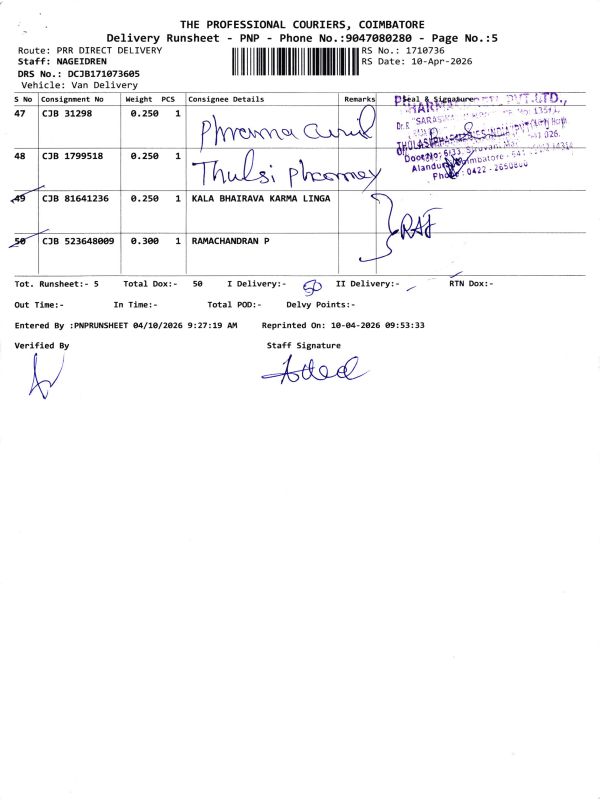 THE PROFESSIONAL COURIERS, COIMBATORE
Delivery Runsheet - PNP - Phone No.:9047080280 - Page No.:5
Route: PRR DIRECT DELIVERY
RS No.: 1710736
Staff: NAGEIDREN
RS Date: 10-Apr-2026
DRS No.: DCJB171073605
Vehicle: Van Delivery
S No Consignment No Weight PCS Consignee Details Remarks Seal & Signature
PVT.LTD.,
47 CJB 31298 0.250 1
48 CJB 1799518 0.250 1 Thulsi
Coimbatore
Phone: 0422 - 2650800
49 CJB 81641236 0.250 1 KALA BHAIRAVA KARMA LINGA
RAJ
50 CJB 523648009 0.300 1 RAMACHANDRAN P
Tot. Runsheet:- 5 Total Dox:- 50 I Delivery:- 50 II Delivery:- - RTN Dox:-
Out Time:- In Time:- Total POD:- Delvy Points:-
Entered By :PNPRUNSHEET 04/10/2026 9:27:19 AM Reprinted On: 10-04-2026 09:53:33
Verified By Staff Signature